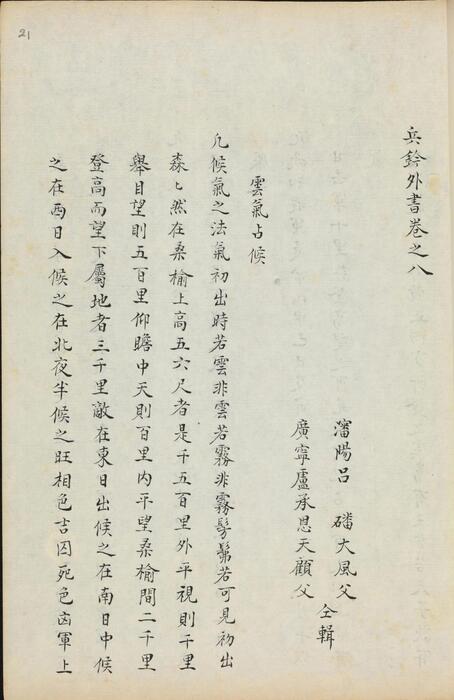 21
兵鈐外書卷之八
瀋陽呂磻大風父
廣寧盧承恩天顧父
仝輯
雲氣占候
凡候氣之法氣初出時若雲非雲若霧非霧髣髴若可見初出
森〻然在桑榆上高五六尺者是千五百里外平視則千里
舉目望則五百里仰瞻中天則百里內平望桑榆間二千里
登高而望下屬地者三千里敵在東日出候之在南日中候
之在西日入候之在北夜半候之旺相色吉囚死色凶軍上